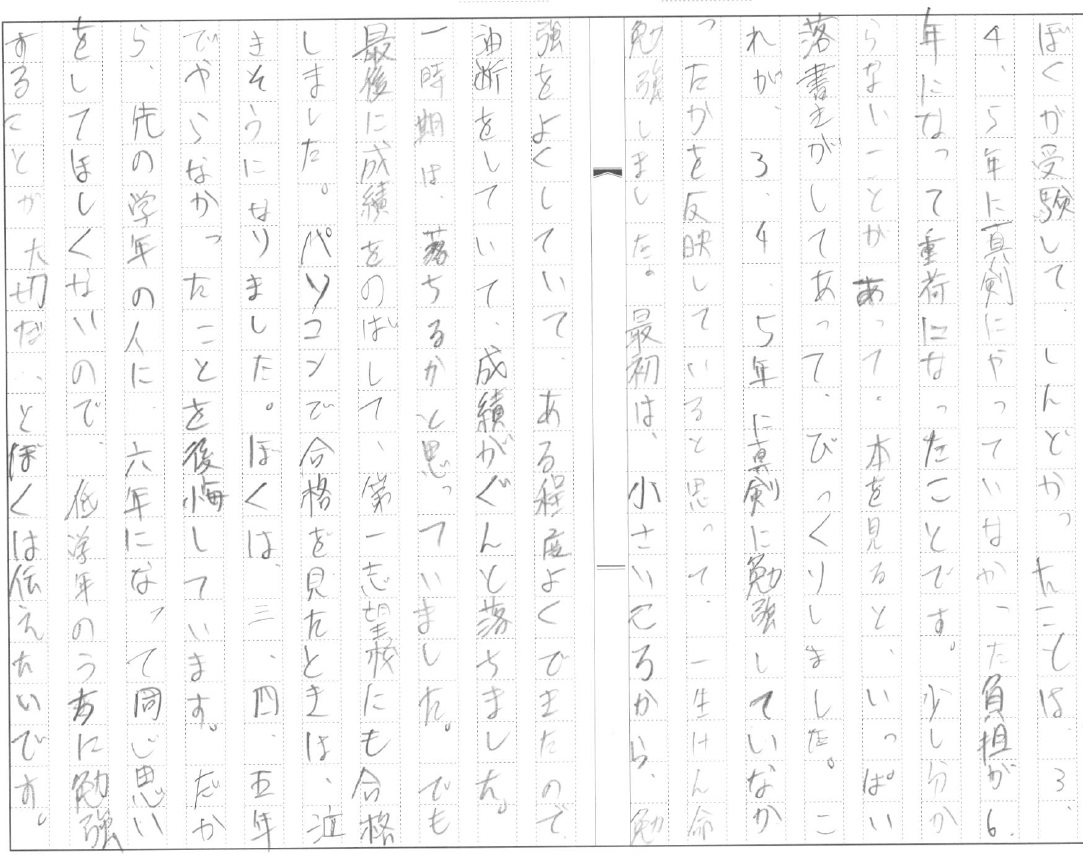 ぼくが受験して、しんどかったことは、3、
4、5年に真剣にやっていなかった負担が6
年になって重荷になったことです。少し分か
らないことがあって、本を見ると、いっぱい
落書きがしてあって、びっくりしました。こ
れが、3、4、5年に真剣に勉強していなか
ったかを反映していると思って、一生けん命
勉強しました。最初は、小さいころから、勉
強をよくしていて、ある程度よくできたので
油断をしていて、成績がぐんと落ちました。
一時期は、落ちるかと思っていました。でも
最後に成績をのばして、第一志望校にも合格
しました。パソコンで合格を見たときは、泣
きそうになりました。ぼくは、三、四、五年
でやらなかったことを後悔しています。だか
ら、先の学年の人に、六年になって同じ思い
をしてほしくないので、低学年のうちに勉強
することが大切だ、とぼくは伝えたいです。